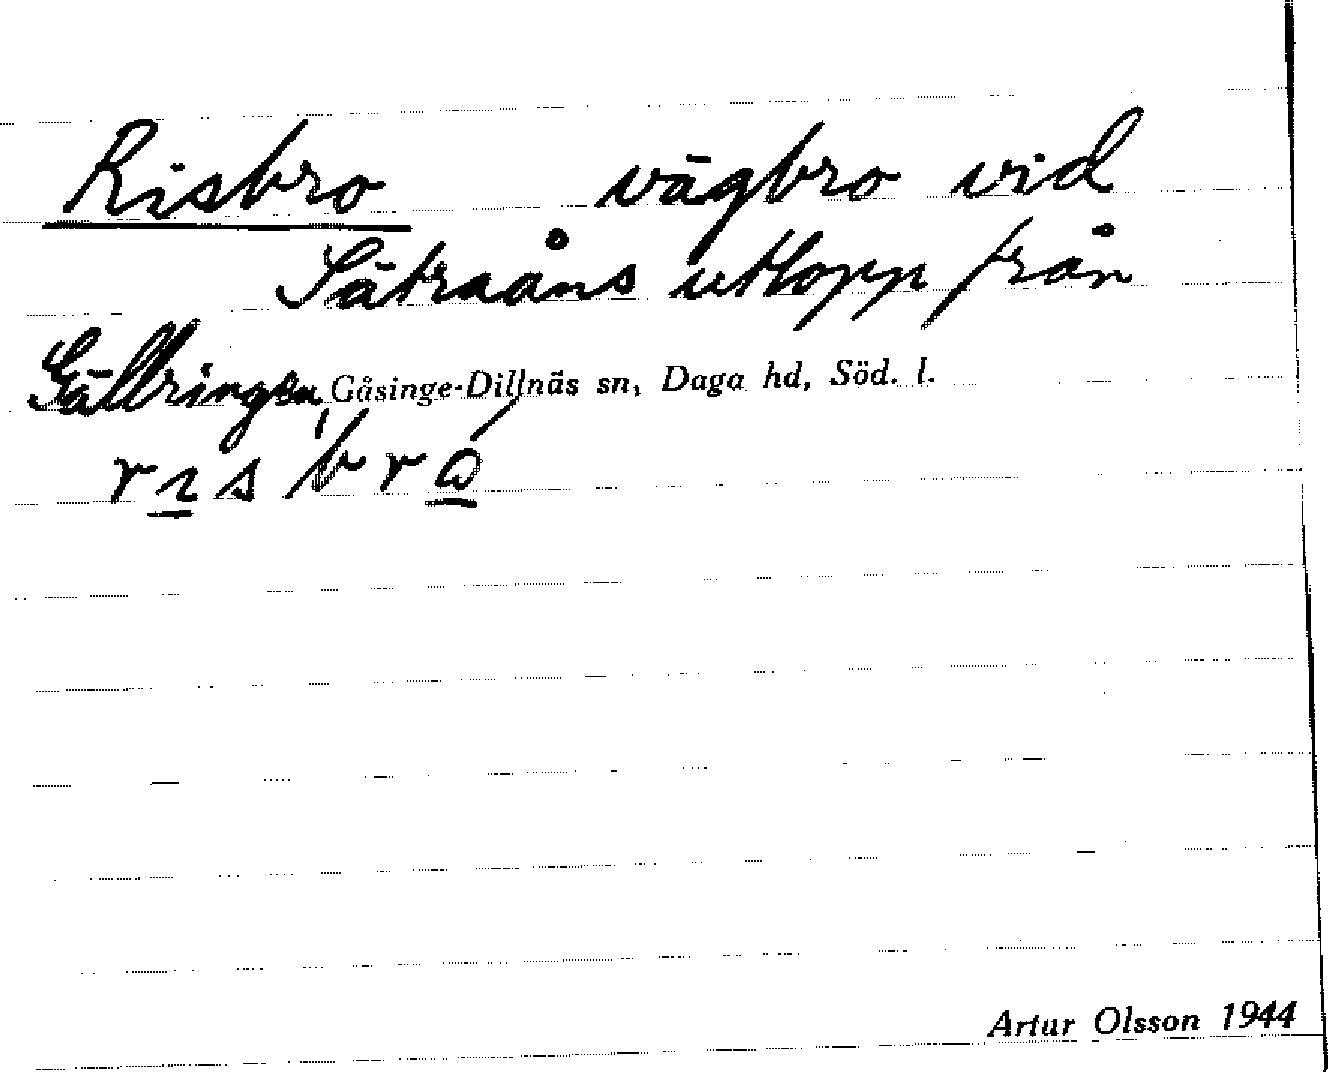 Risbro vägbro vid
Sätraåns utlopp från
Gällringen, Gåsinge-Dillnäs sn, Daga hd, Söd. l.
Artur Olsson 1944